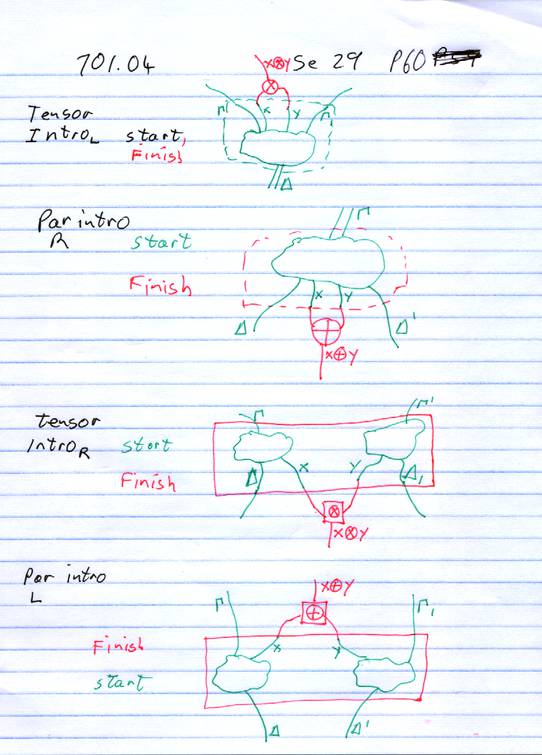 701.04 X⊗Y Se 29 P60
Γ X Y Γ'
Tensor
Intro_L start,
Finish
Δ
Par intro Γ
R start
Finish X Y
Δ Δ'
X⊕Y
tensor Γ Γ'
Intro_R start
X Y
Finish Δ Δ₁
X⊗Y
Par intro X⊕Y
L
Γ Γ₁
Finish X Y
start
Δ Δ'